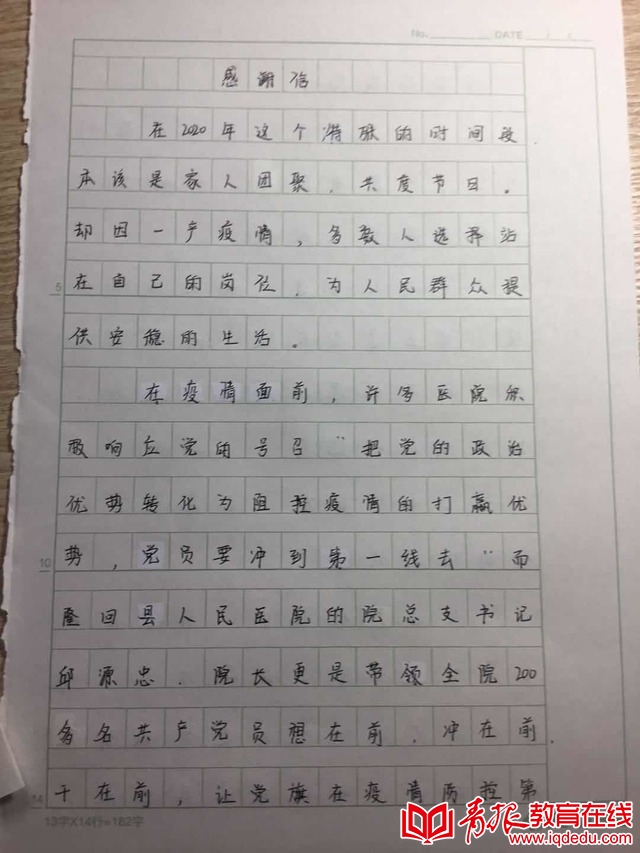 No. DATE / /
感谢信
在2020年这个特殊的时间段
本该是家人团聚，共度节日。
却因一产疫情，多数人选择站
5 在自己的岗位，为人民群众提
供安稳的生活。
在疫情面前，许多医院积
极响应党的号召“把党的政治
优势转化为阻控疫情的打赢优
10 势，党员要冲到第一线去”而
隆回县人民医院的院总支书记
邱源忠．院长更是带领全院200
多名共产党员想在前．冲在前．
14 干在前，让党旗在疫情防控第
13字X14行=182字
青报教育在线
www.iqdedu.com